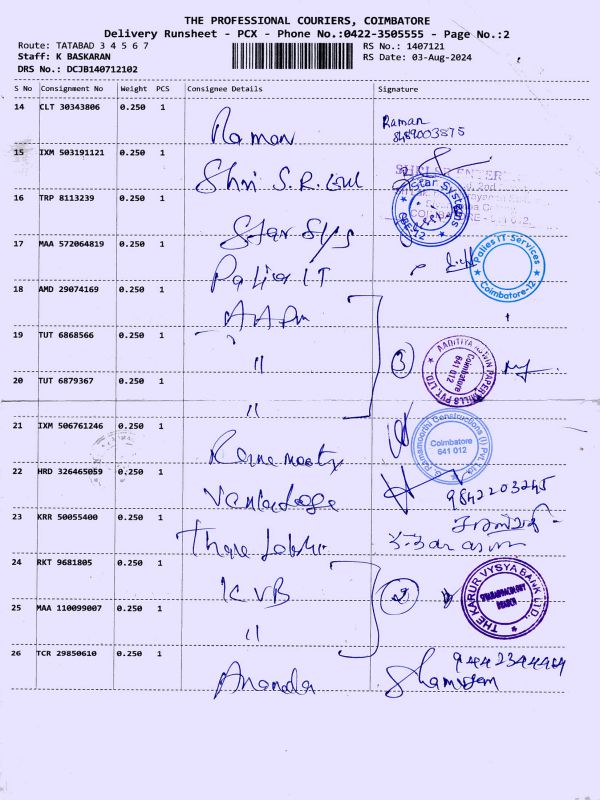 THE PROFESSIONAL COURIERS, COIMBATORE
Delivery Runsheet - PCX - Phone No.:0422-3505555 - Page No.:2
Route: TATABAD 3 4 5 6 7
Staff: K BASKARAN
DRS No.: DCJB140712102
RS No.: 1407121
RS Date: 03-Aug-2024
S No Consignment No Weight PCS Consignee Details Signature
14 CLT 30343806 0.250 1
Raman Raman
15 IXM 503191121 0.250 1
Shri S.R.
16 TRP 8113239 0.250 1
Star Sys
Star Systems
CBE-12
17 MAA 572064819 0.250 1
IT
Palies IT Services
Coimbatore-12
18 AMD 29074169 0.250 1
19 TUT 6868566 0.250 1
"
3
AADITIYA ASWIN PAPER MILLS PVT. LTD.
Coimbatore
641 012
20 TUT 6879367 0.250 1
"
21 IXM 506761246 0.250 1
Ramamoorthi Constructions (I) Pvt. Ltd.
Coimbatore
641 012
22 HRD 326465059 0.250 1
9842203245
23 KRR 50055400 0.250 1
24 RKT 9681805 0.250 1
KVB
2
THE KARUR VYSYA BANK LTD.
BRANCH
25 MAA 110099007 0.250 1
"
26 TCR 29850610 0.250 1
Ananda